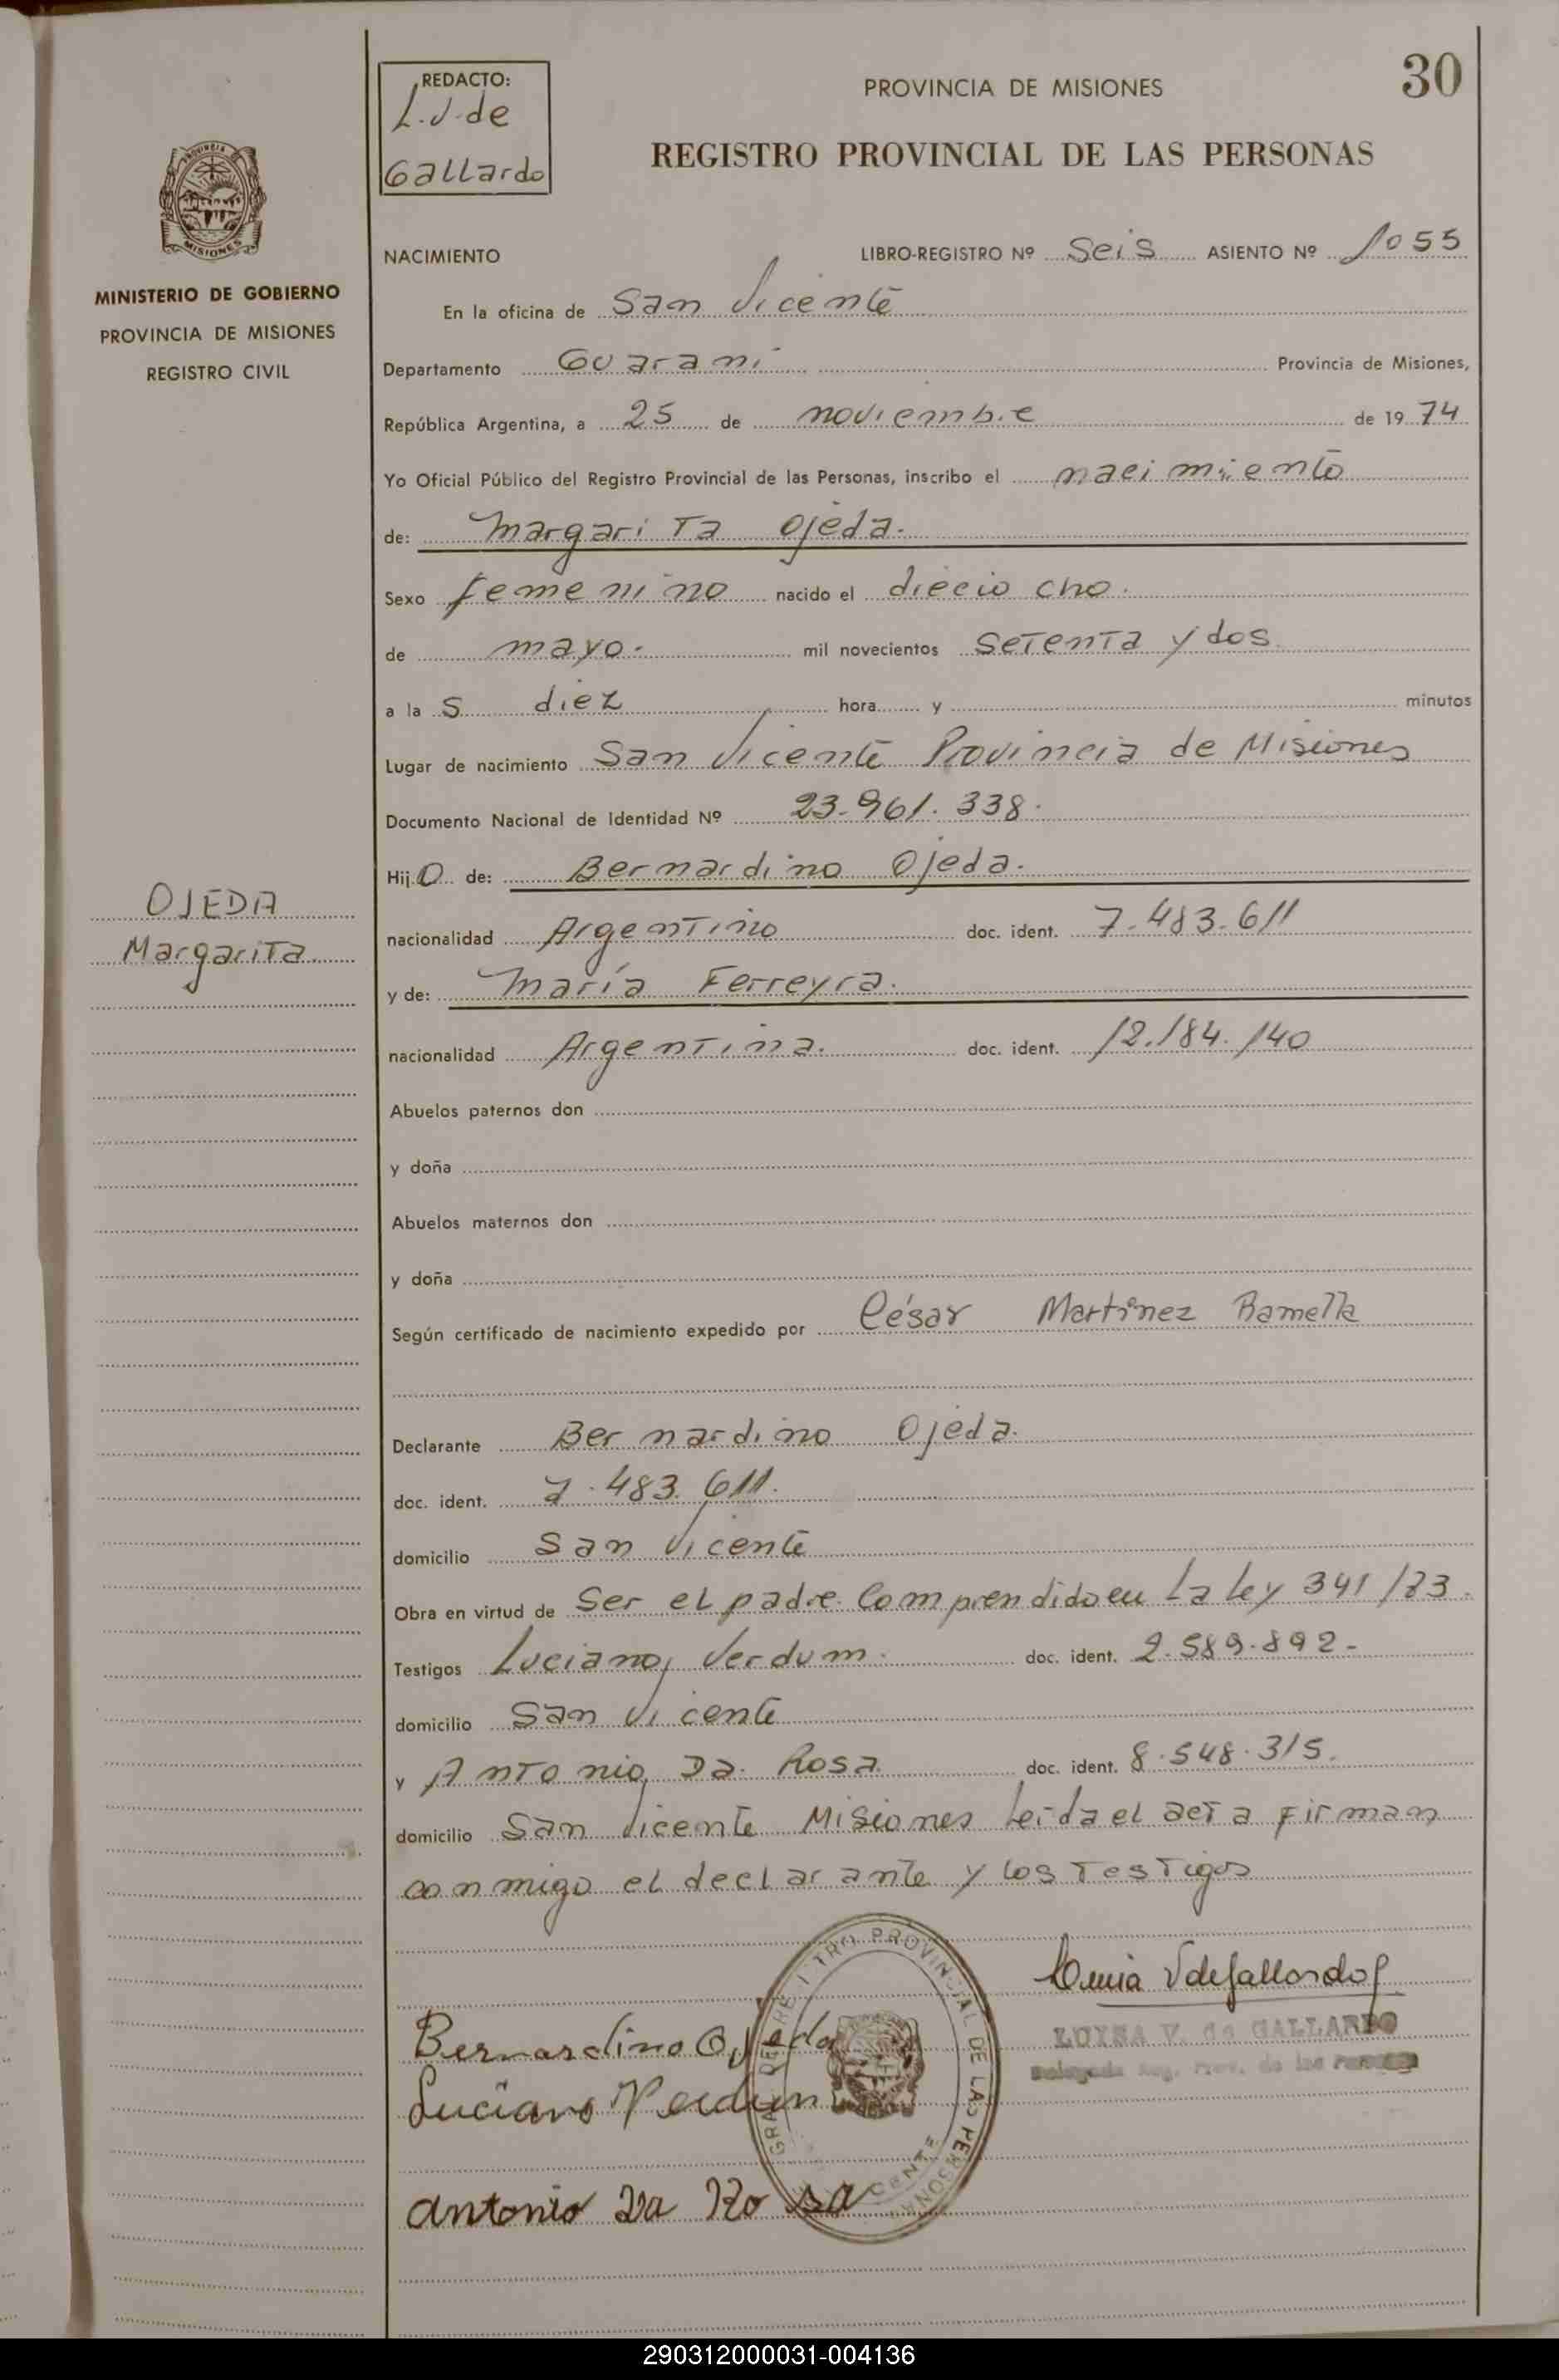 30
REDACTO:
L.V. de
Gallardo
PROVINCIA DE MISIONES
REGISTRO PROVINCIAL DE LAS PERSONAS
PROVINCIA
MISIONES
MINISTERIO DE GOBIERNO
PROVINCIA DE MISIONES
REGISTRO CIVIL
OJEDA
Margarita
NACIMIENTO LIBRO-REGISTRO Nº Seis ASIENTO Nº 1055
En la oficina de San Vicente
Departamento Guaraní Provincia de Misiones,
República Argentina, a 25 de noviembre de 1974
Yo Oficial Público del Registro Provincial de las Personas, inscribo el nacimiento
de: Margarita Ojeda.
Sexo femenino nacido el dieciocho.
de mayo. mil novecientos setenta y dos.
a la s diez hora y minutos
Lugar de nacimiento San Vicente Provincia de Misiones
Documento Nacional de Identidad Nº 23.961.338.
Hijo de: Bernardino Ojeda.
nacionalidad Argentino doc. ident. 7.483.611
y de: María Ferreyra.
nacionalidad Argentina. doc. ident. 12.184.140
Abuelos paternos don
y doña
Abuelos maternos don
y doña
Según certificado de nacimiento expedido por César Martínez Ramella
Declarante Bernardino Ojeda.
doc. ident. 7.483.611.
domicilio San Vicente
Obra en virtud de Ser el padre Comprendido en La Ley 341/73.
Testigos Luciano Verdum. doc. ident. 2.589.892-
domicilio San Vicente
y Antonio Da Rosa. doc. ident. 8.548.315.
domicilio San Vicente Misiones Leída el acta firman
conmigo el declarante y los testigos
Bernardino Ojeda
Luciano Verdun
Antonio Da Rosa
LUISA V. de GALLARDO
Delegada Reg. Prov. de las Personas
290312000031-004136